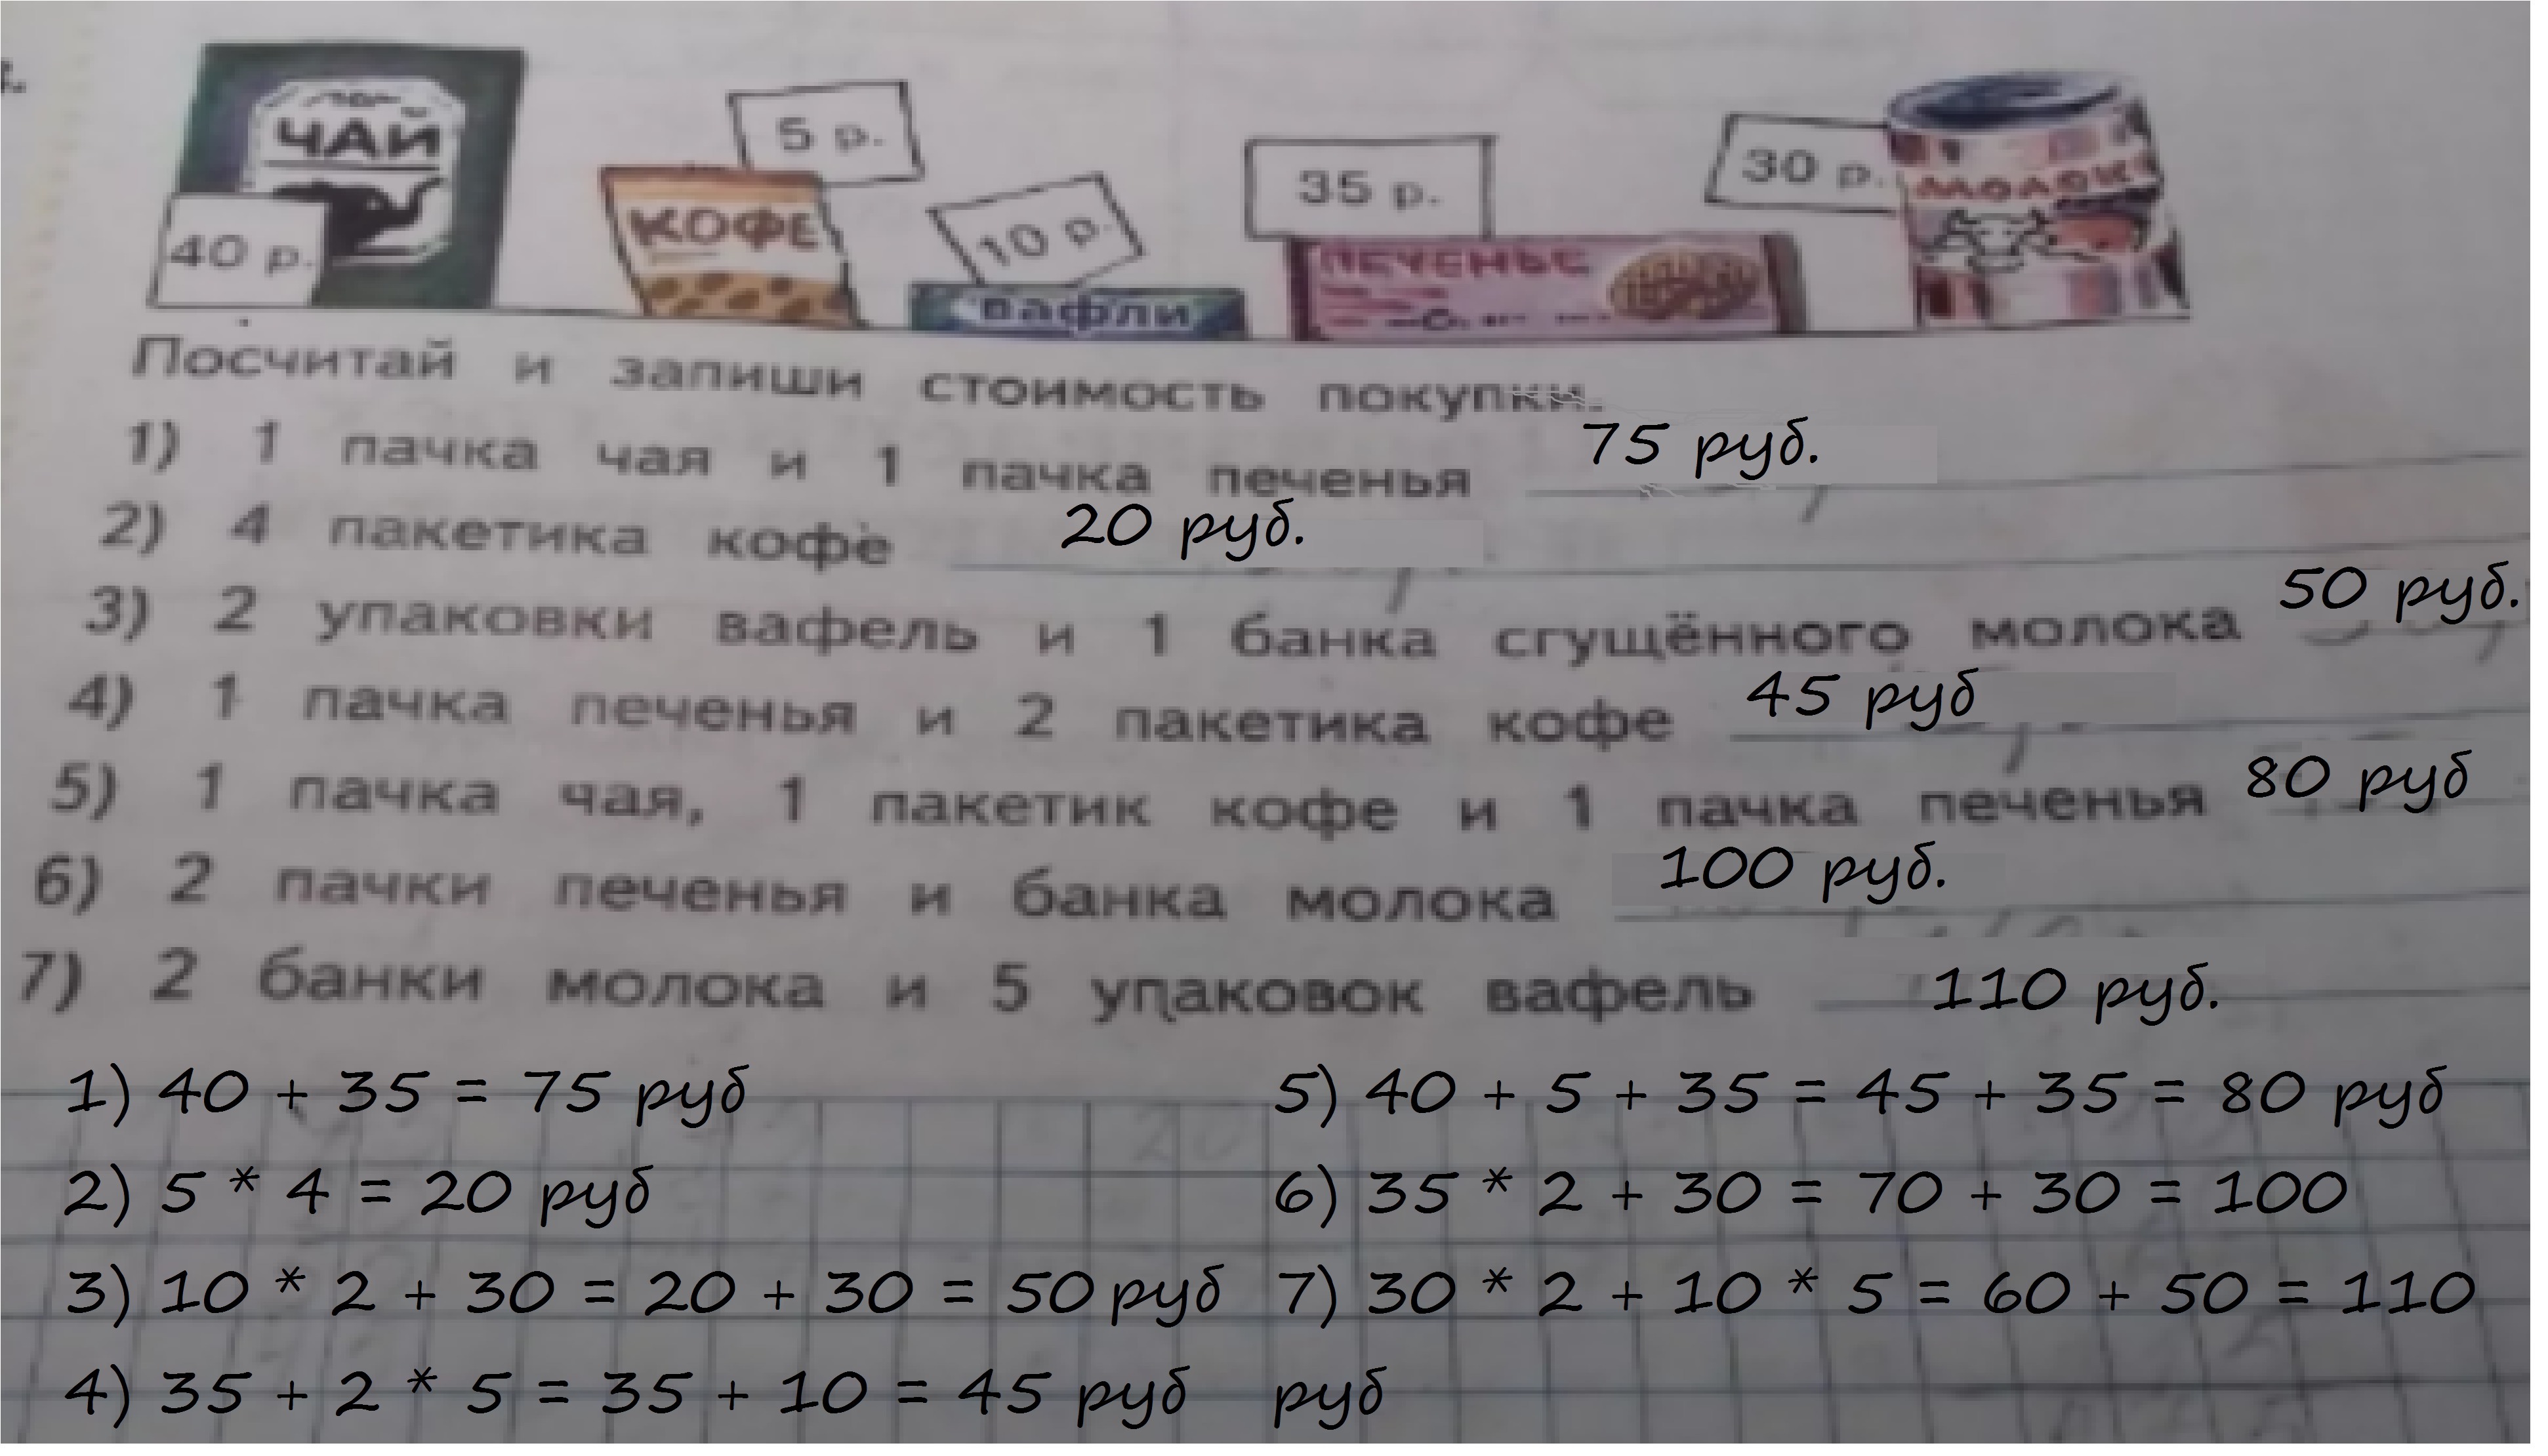 ЧАЙ
40 р.
КОФЕ
5 р.
10 р.
вафли
35 р.
ПЕЧЕНЬЕ
30 р.
МОЛОК
Посчитай и запиши стоимость покупки.
1) 1 пачка чая и 1 пачка печенья 75 руб.
2) 4 пакетика кофе 20 руб.
3) 2 упаковки вафель и 1 банка сгущённого молока 50 руб.
4) 1 пачка печенья и 2 пакетика кофе 45 руб
5) 1 пачка чая, 1 пакетик кофе и 1 пачка печенья 80 руб
6) 2 пачки печенья и банка молока 100 руб.
7) 2 банки молока и 5 упаковок вафель 110 руб.
1) 40 + 35 = 75 руб
2) 5 * 4 = 20 руб
3) 10 * 2 + 30 = 20 + 30 = 50 руб
4) 35 + 2 * 5 = 35 + 10 = 45 руб
5) 40 + 5 + 35 = 45 + 35 = 80 руб
6) 35 * 2 + 30 = 70 + 30 = 100
7) 30 * 2 + 10 * 5 = 60 + 50 = 110
руб